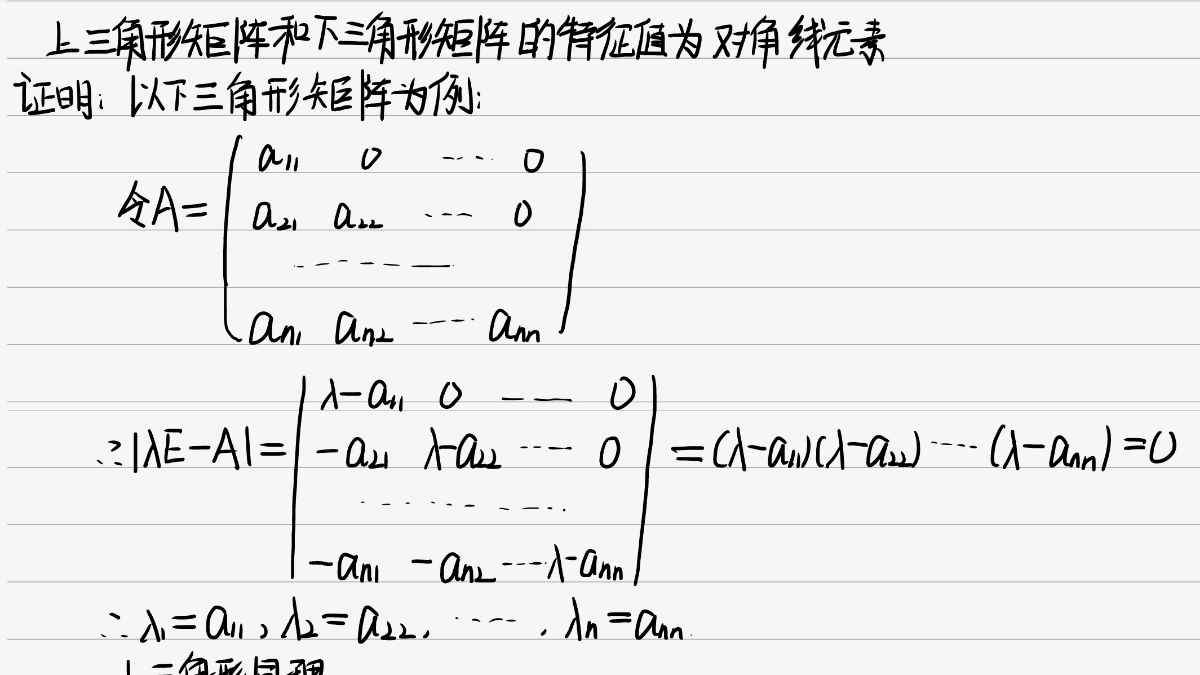 上三角形矩阵和下三角形矩阵的特征值为对角线元素
证明: 以下三角形矩阵为例:
令A= ( a₁₁ 0 ⋯ 0
a₂₁ a₂₂ ⋯ 0
⋯⋯⋯
aₙ₁ aₙ₂ ⋯ aₙₙ )
∴|λE-A|= | λ-a₁₁ 0 ⋯ 0
-a₂₁ λ-a₂₂ ⋯ 0 | =(λ-a₁₁)(λ-a₂₂)⋯(λ-aₙₙ)=0
⋯⋯⋯
-aₙ₁ -aₙ₂ ⋯ λ-aₙₙ |
∴ λ₁=a₁₁, λ₂=a₂₂, ⋯, λₙ=aₙₙ.
上三角形同理